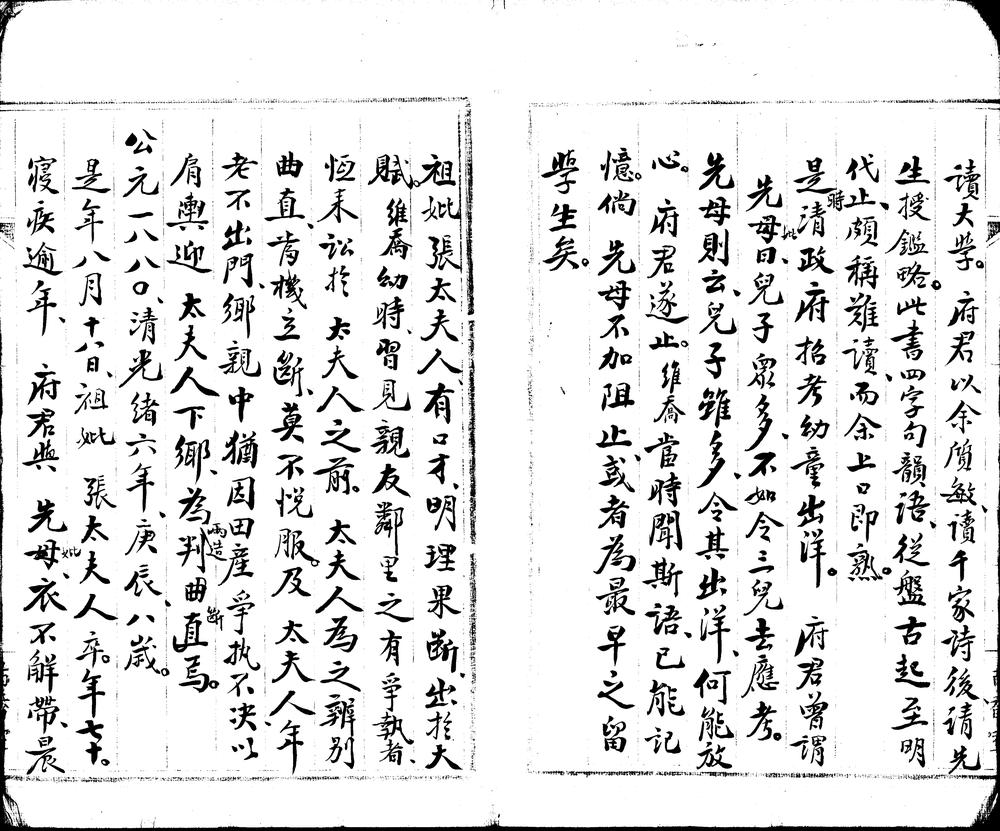 讀大學。府君以余質敏、讀千家詩後請先
生授鑑略。此書四字句韻語、從盤古起至明
代止、頗稱難讀、而余上口即熟。
是時清政府招考幼童出洋。府君曾謂
先妣母曰、兒子眾多、不如令三兒去應考。
先母則云、兒子雖多、令其出洋、何能放
心。府君遂止。維喬當時聞斯語、已能記
憶。倘先母不加阻止、或者為最早之留
學生矣。
祖妣張太夫人、有口才、明理果斷、出於天
賦。維喬幼時、習見親友鄰里之有爭執者、
恆來訟於太夫人之前。太夫人為之辨別
曲直、當機立斷、莫不悅服。及太夫人年
老不出門、鄉親中猶因田產爭執不決、以
肩輿迎太夫人下鄉、為兩造判斷曲直焉。
公元一八八〇、清光緒六年、庚辰、八歲。
是年八月十八日、祖妣張太夫人卒。年七十。
寢疾逾年、府君與先妣母、衣不解帶、晨